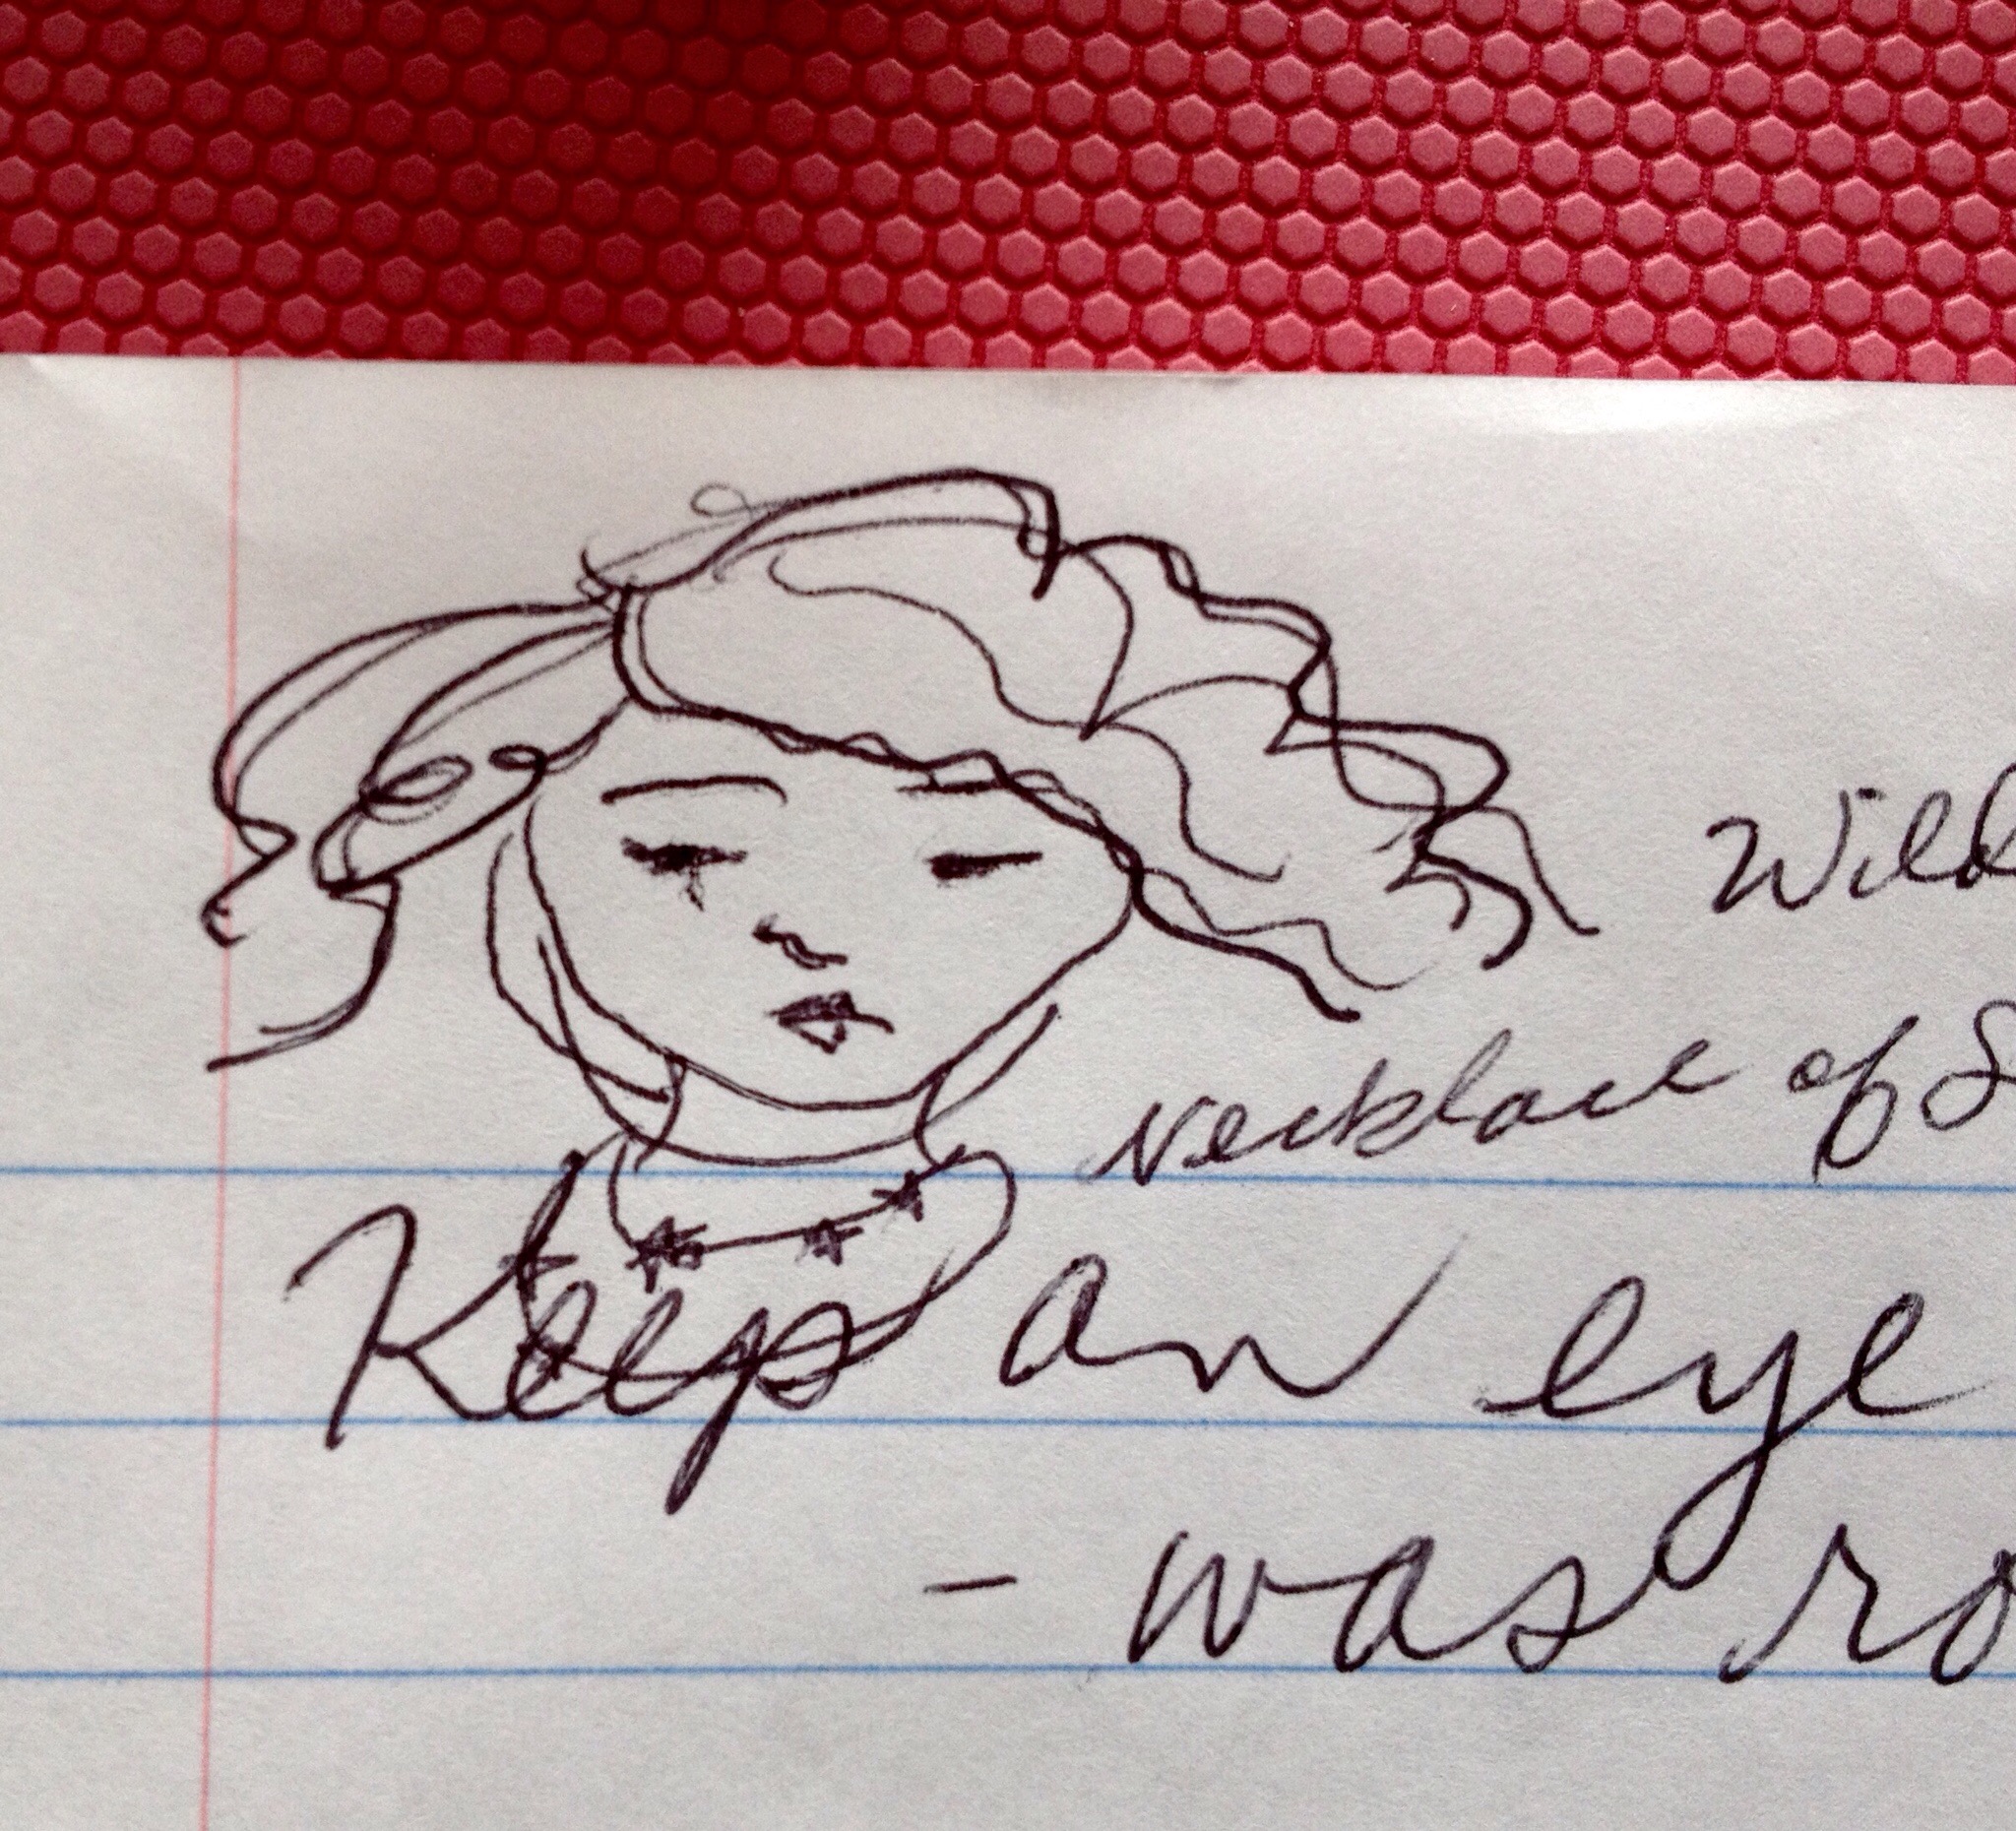 Wild
Necklace of S
Keep an eye
- was ro